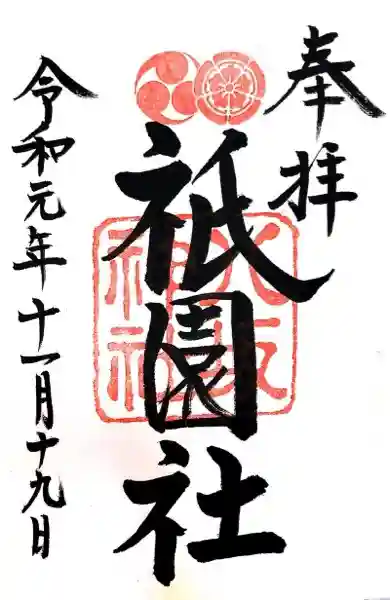 奉拝
祇園社
八坂
神社
令和元年十一月十九日